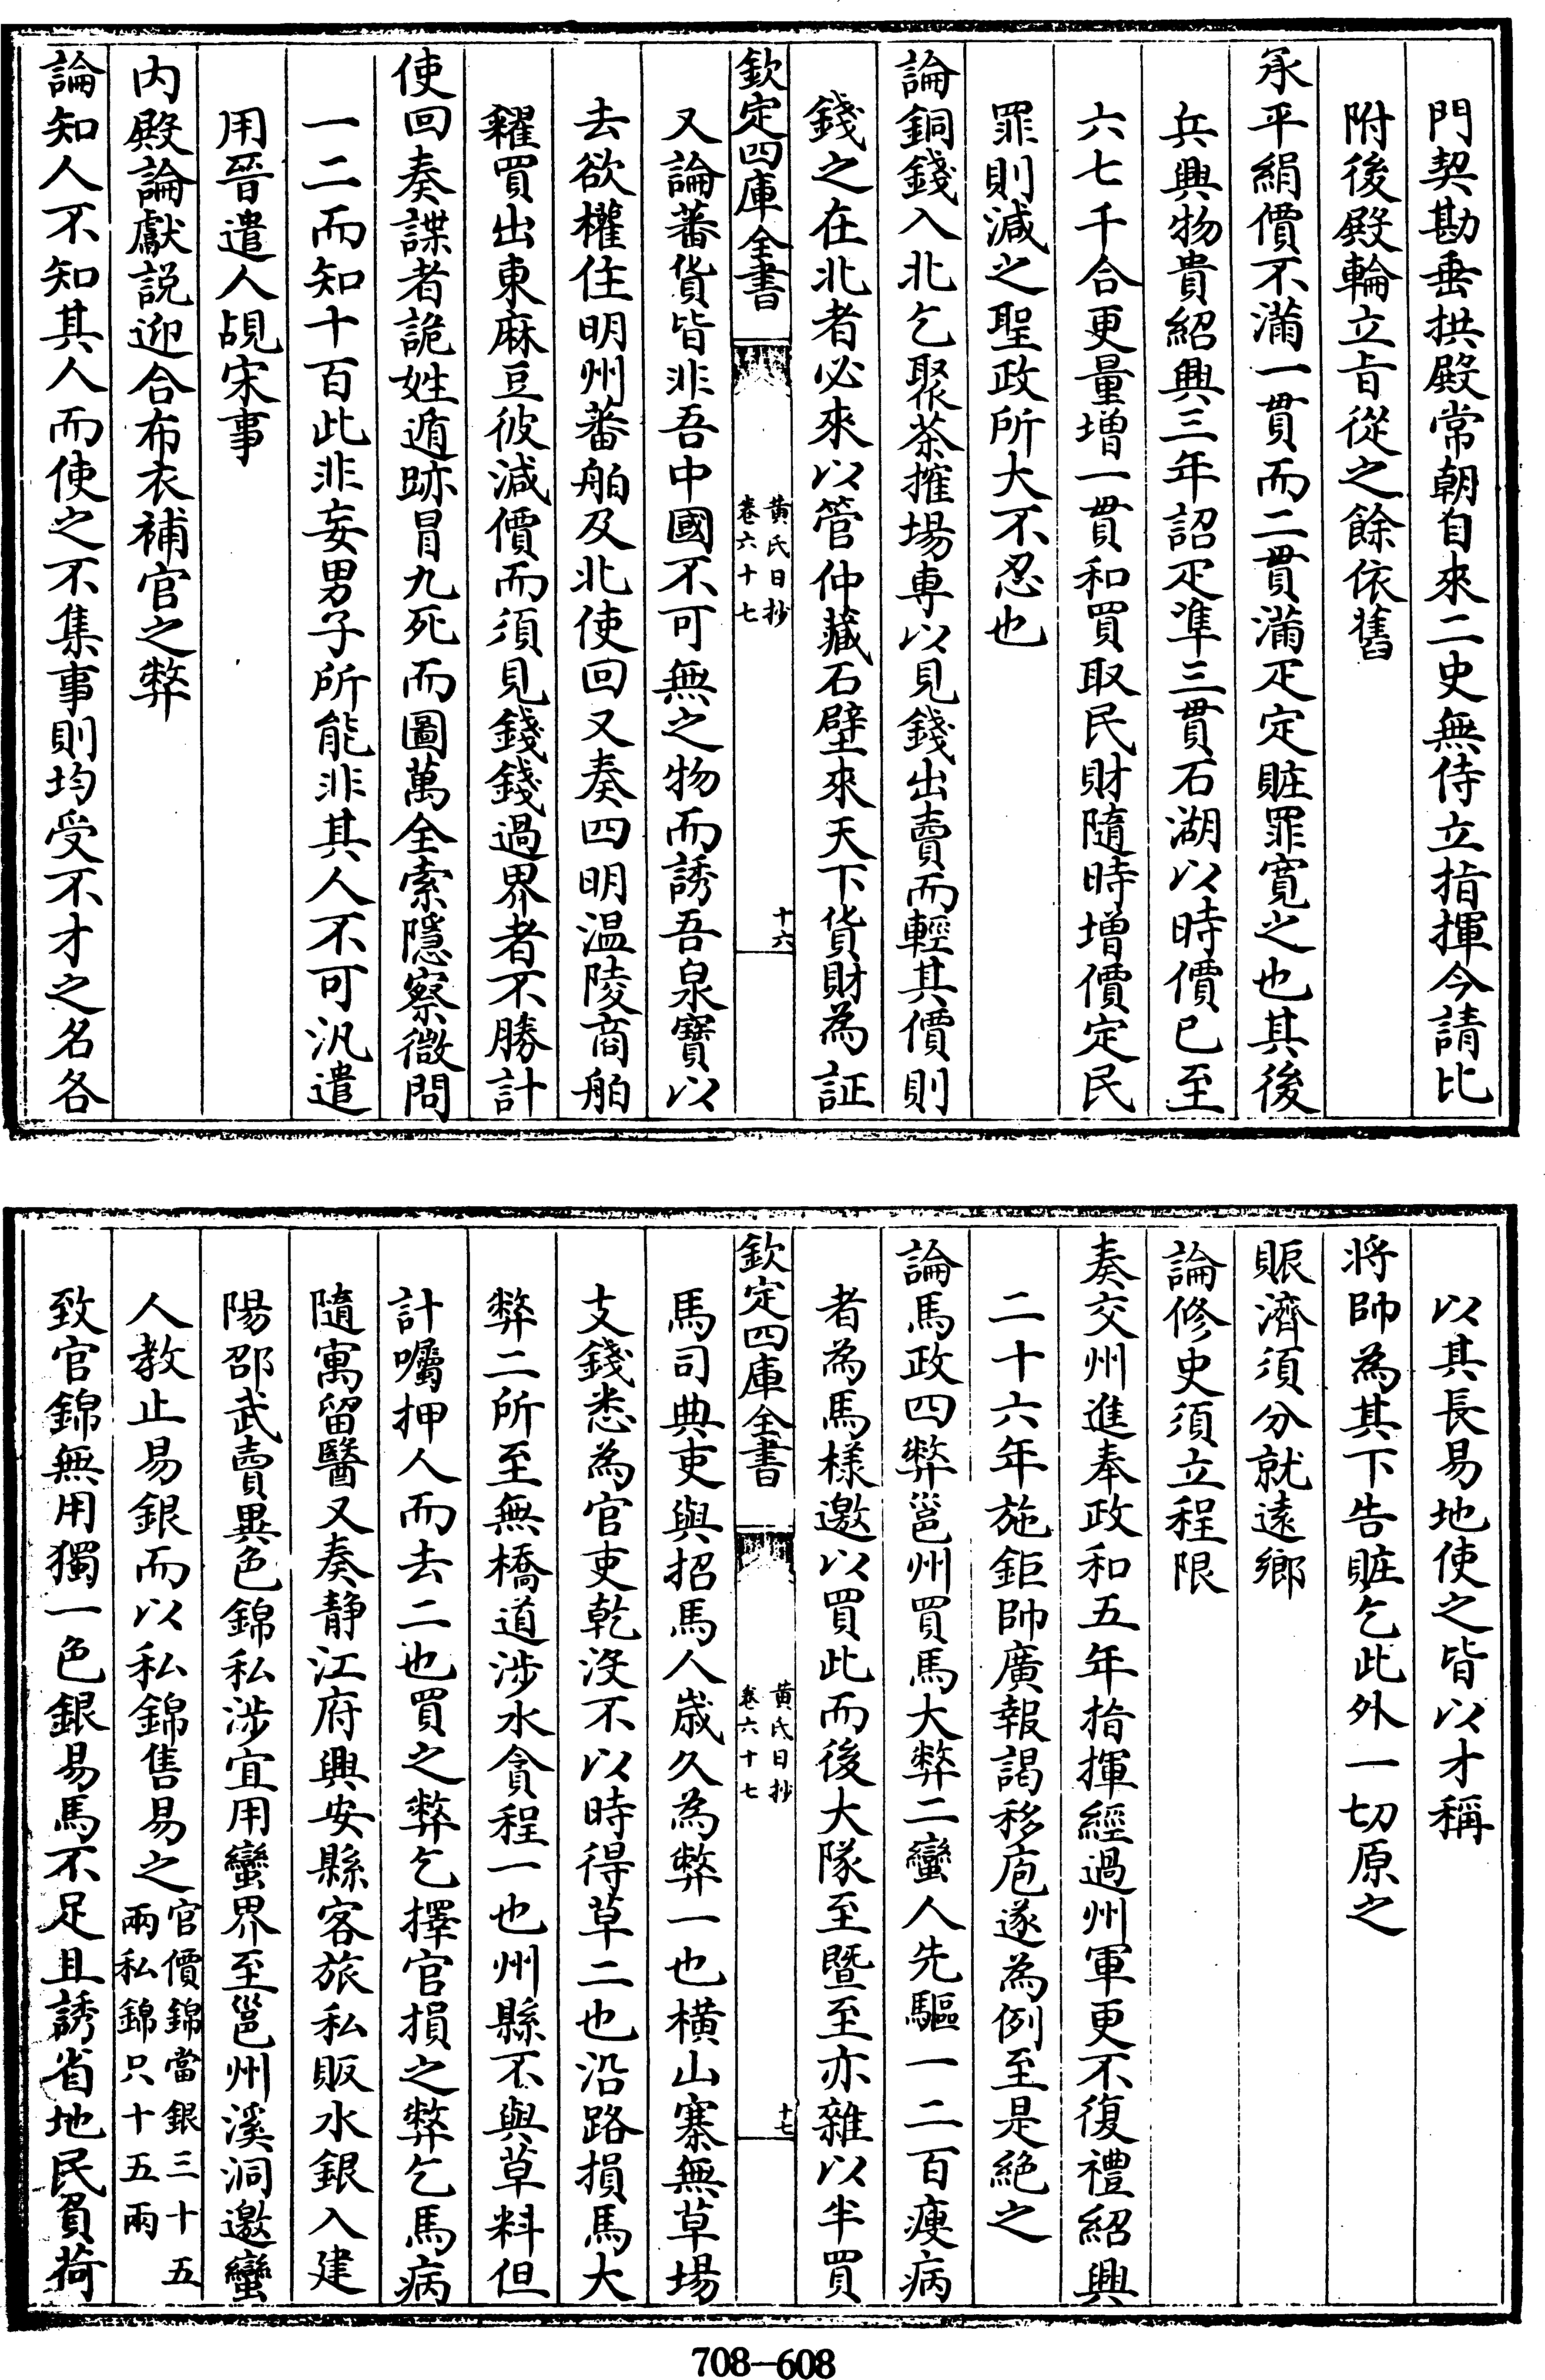 門契勘垂拱殿常朝自來二史無侍立指揮今請比
附後殿輪立㫖從之餘依舊
承平絹價不滿一貫而二貫滿疋定賍罪寛之也其後
兵興物貴紹興三年詔疋凖三貫石湖以時價已至
六七千合更量增一貫和買取民財隨時增價定民
罪則減之聖政所大不忍也
論銅錢入北乞聚茶搉場専以見錢出賣而輕其價則
錢之在北者必來以管仲藏石壁來天下貨財為証
欽定四庫全書
黄氏日抄
卷六十七
十六
又論蕃貨皆非吾中國不可無之物而誘吾泉寶以
去欲權住明州蕃舶及北使回又奏四明温陵商舶
糴買出東麻豆彼減價而須見錢錢過界者不勝計
使回奏諜者詭姓遁跡冒九死而圖萬全索隱察微問
一二而知十百此非妄男子所能非其人不可汎遣
用晉遣人覘宋事
内殿論獻説迎合布衣補官之弊
論知人不知其人而使之不集事則均受不才之名各
以其長易地使之皆以才稱
將帥為其下告賍乞此外一切原之
賑濟須分就逺鄉
論修史須立程限
奏交州進奉政和五年指揮經過州軍更不復禮紹興
二十六年施鉅帥廣報謁移庖遂為例至是絶之
論馬政四弊邕州買馬大弊二蠻人先驅一二百瘦病
者為馬樣邀以買此而後大隊至暨至亦雜以半買
欽定四庫全書
黄氏日抄
卷六十七
十七
馬司典吏與招馬人嵗久為弊一也横山寨無草場
支錢悉為官吏乾沒不以時得草二也沿路損馬大
弊二所至無橋道涉水貪程一也州縣不與草料但
計囑押人而去二也買之弊乞擇官損之弊乞馬病
隨寓留醫又奏静江府興安縣客旅私販水銀入建
陽邵武賣異色錦私涉宜用蠻界至邕州溪洞邀蠻
人教止易銀而以私錦售易之官價錦當銀三十五
兩私錦只十五兩
致官錦無用獨一色銀易馬不足且誘省地民負荷
708-608